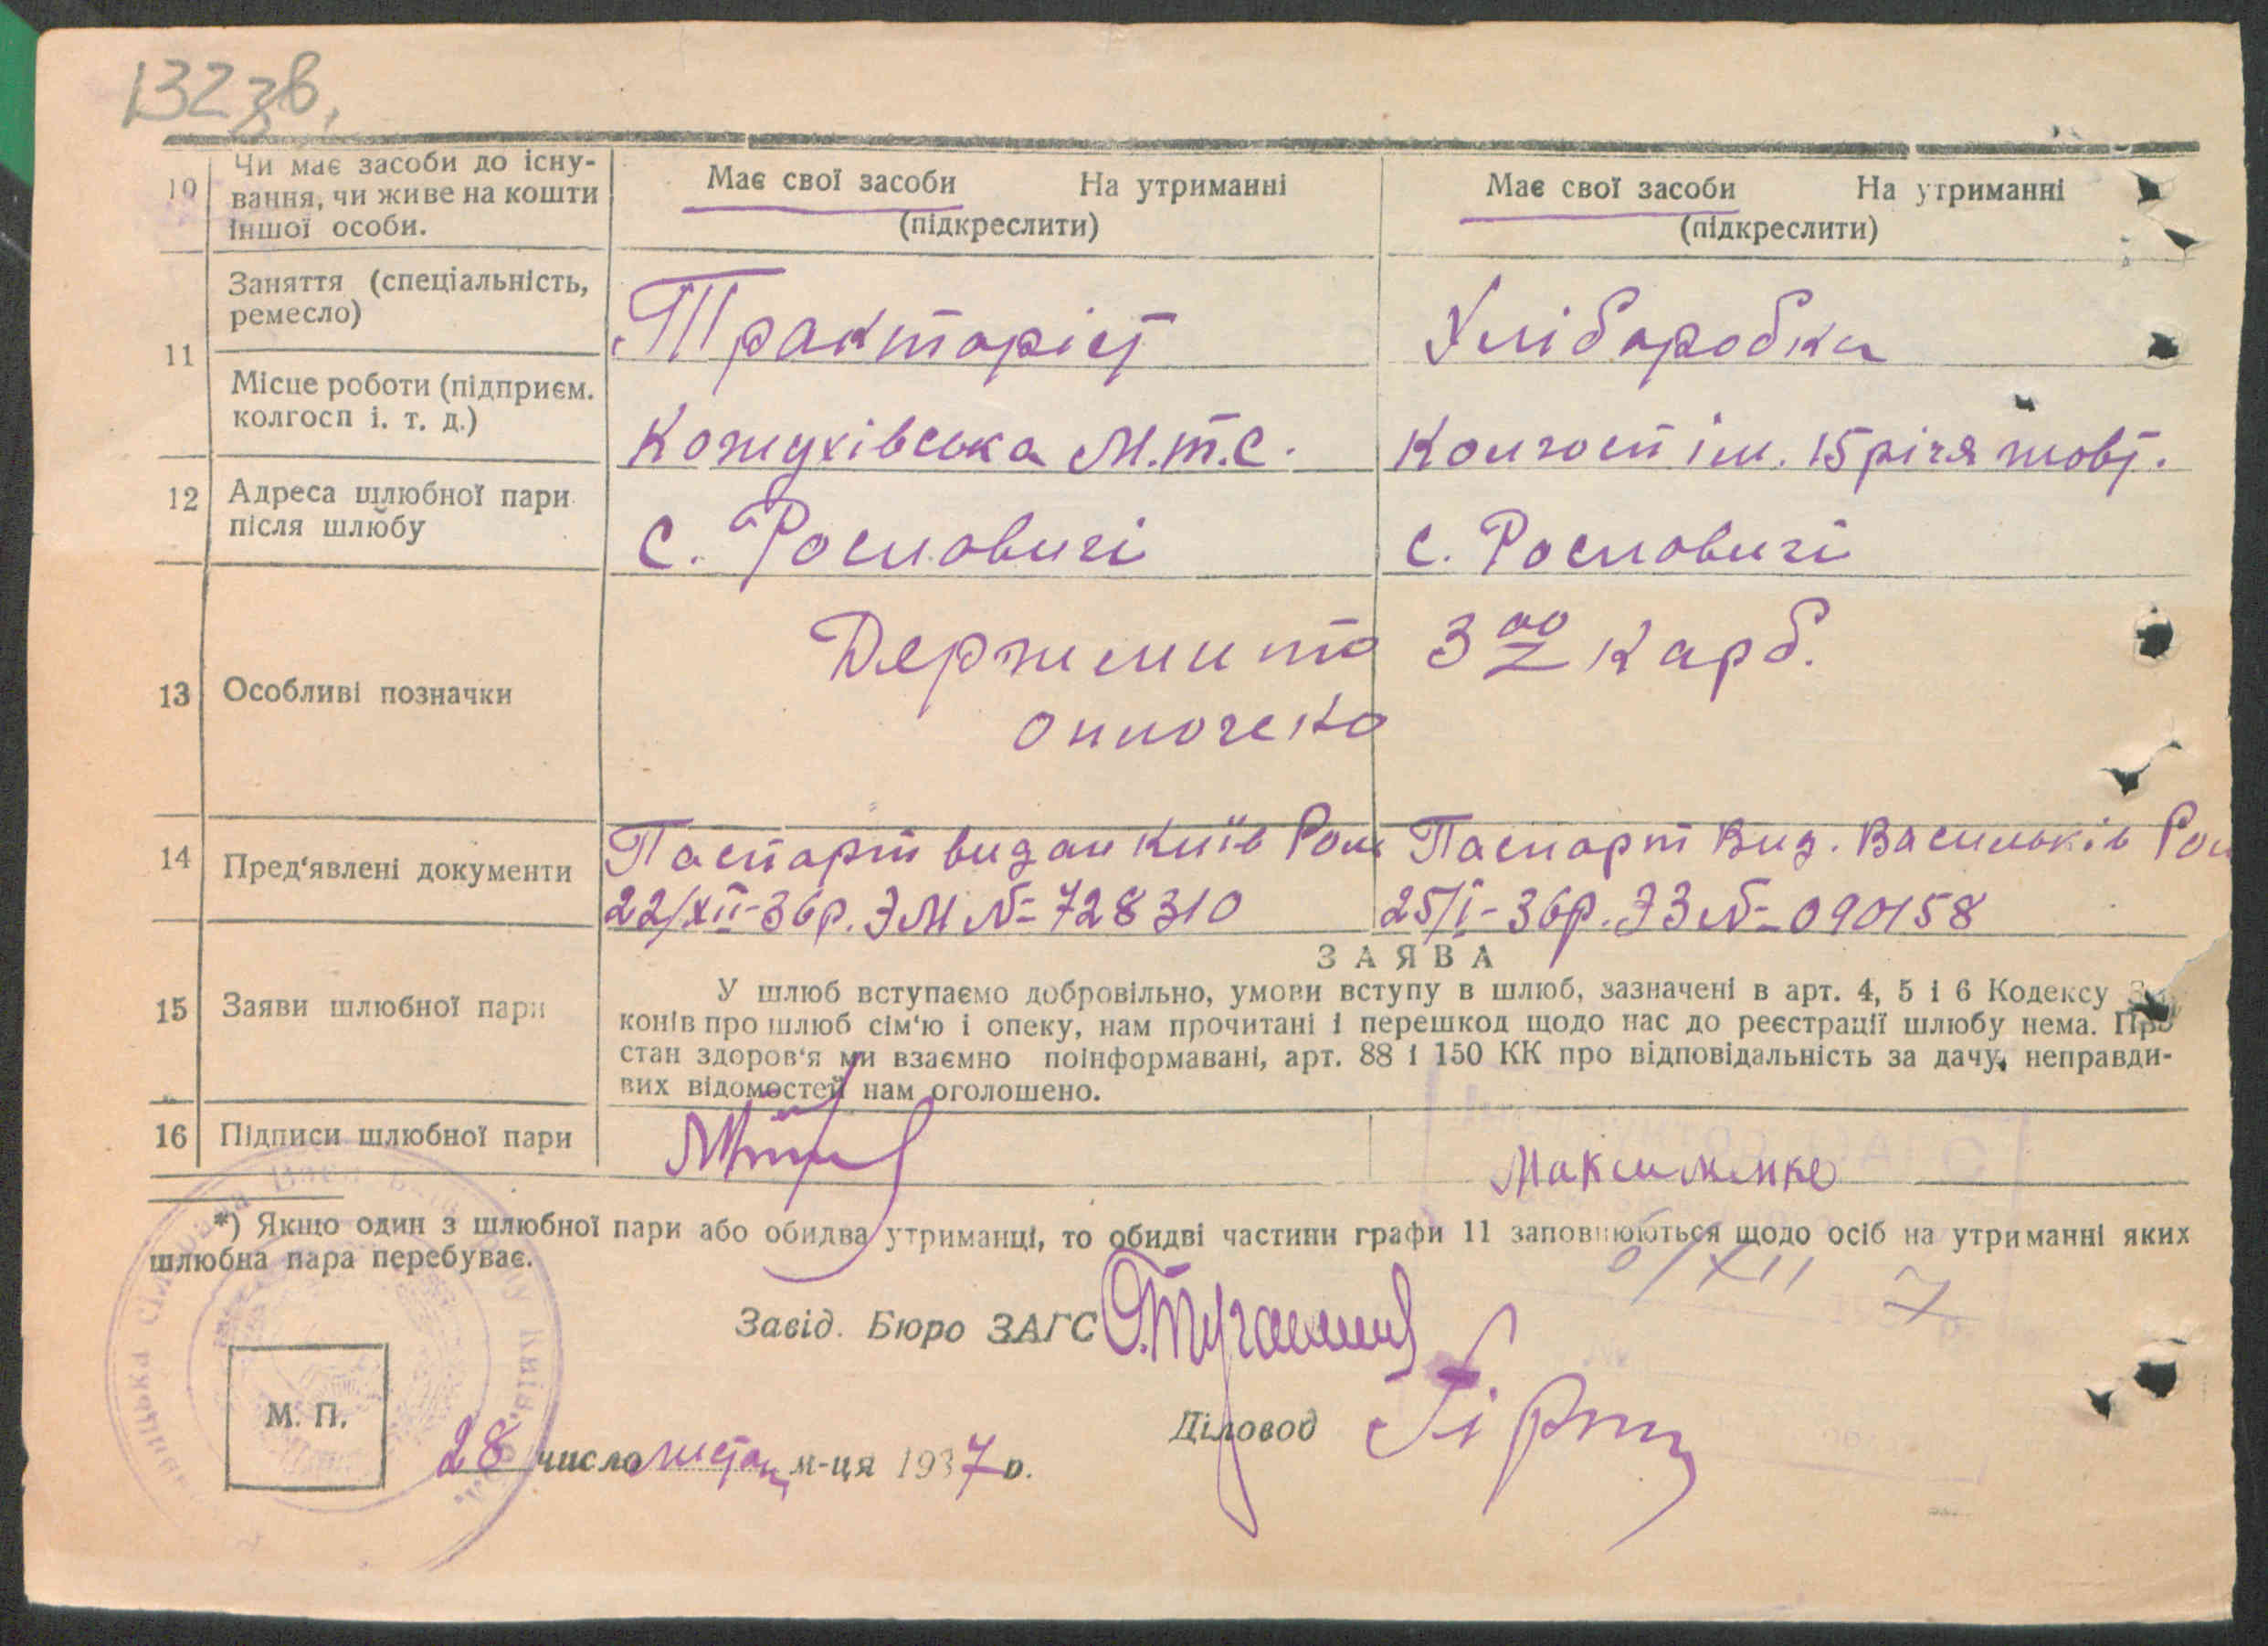 132 зв.
10 Чи має засоби до існу-
вання, чи живе на кошти
іншої особи.
Має свої засоби На утриманні
(підкреслити)
Має свої засоби На утриманні
(підкреслити)
11 Заняття (спеціальність,
ремесло)
Тракторіст
Хліборобка
Місце роботи (підприєм.
колгосп і. т. д.)
Кожухівська М.Т.С.
Колгосп ім. 15 річя жовт.
12 Адреса шлюбної пари
після шлюбу
с. Рословичі
с. Рословичі
13 Особливі позначки
Держмито 3 00 карб.
оплочено
14 Пред'явлені документи
Паспорт видан Київ
22/XII-36р. ЭМ № 728310
Паспорт Вид. Васильків
25/I-36р. ЭЗ № 090158
15 Заяви шлюбної пари
ЗАЯВА
У шлюб вступаємо добровільно, умови вступу в шлюб, зазначені в арт. 4, 5 і 6 Кодексу За-
конів про шлюб сім'ю і опеку, нам прочитані і перешкод щодо нас до реєстрації шлюбу нема. Про
стан здоров'я ми взаємно поінформавані, арт. 88 і 150 КК про відповідальність за дачу, неправди-
вих відомостей нам оголошено.
16 Підписи шлюбної пари
Максименко
*) Якщо один з шлюбної пари або обидва утриманці, то обидві частини графи 11 заповнюються щодо осіб на утриманні яких
шлюбна пара перебуває.
Завід. Бюро ЗАГС
Діловод
М. П.
28 число листоп м-ця 1937 р.